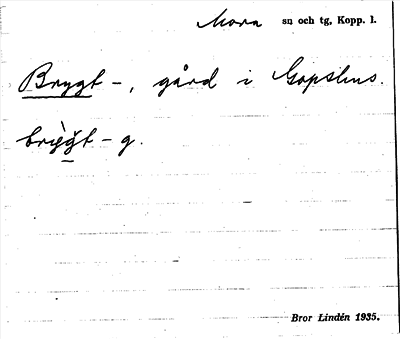 Mora sn och tg, Kopp. l.
Brygt-, gård i Gopshus.
bry̆̀g̱t-g.
Bror Lindén 1935.